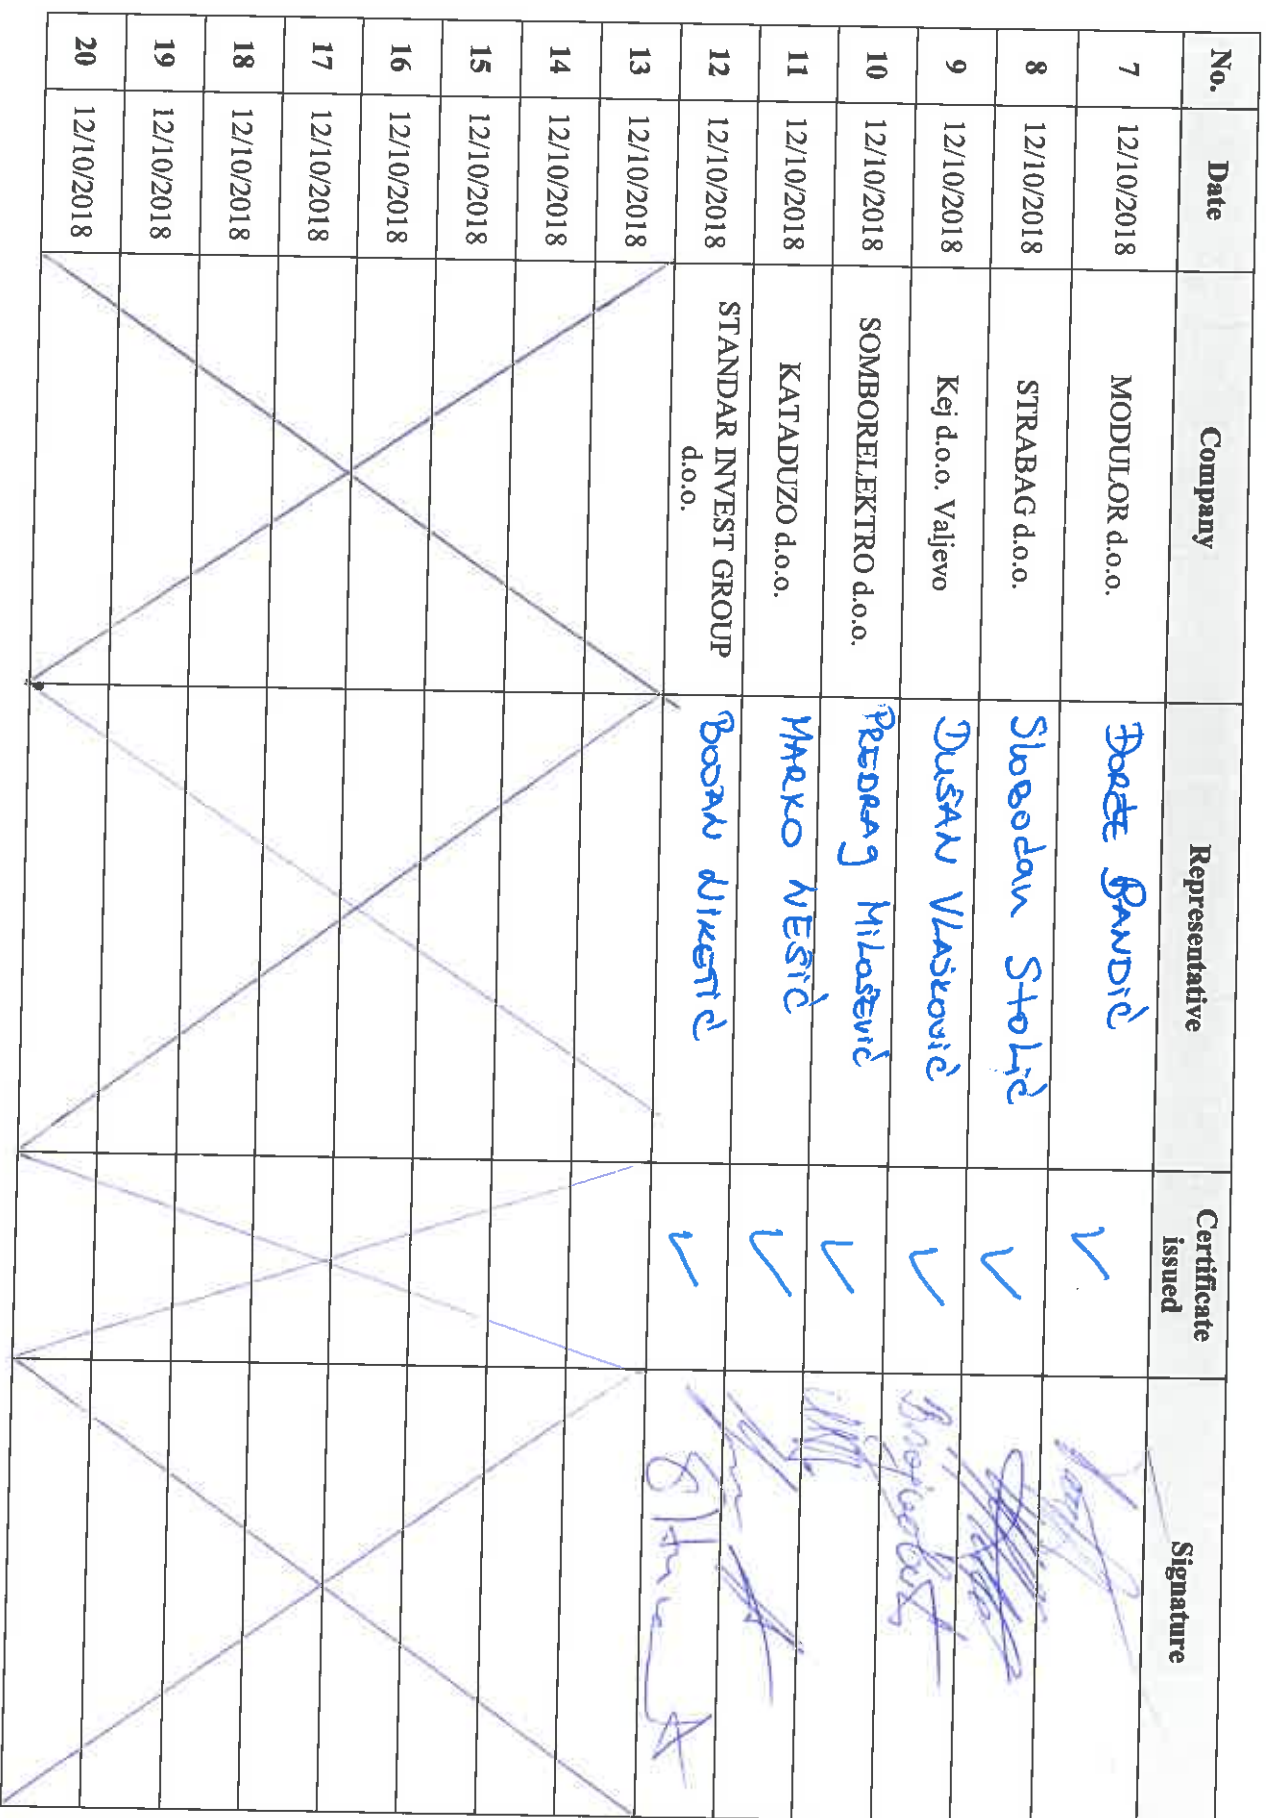 No. Date Company Representative Certificate issued Signature
7 12/10/2018 MODULOR d.o.o. ĐORĐE BANDIĆ ✓
8 12/10/2018 STRABAG d.o.o. Slobodan Stolić ✓
9 12/10/2018 Kej d.o.o. Valjevo DUŠAN VLAŠKOVIĆ ✓
10 12/10/2018 SOMBORELEKTRO d.o.o. PREDRAG MILOŠEVIĆ ✓
11 12/10/2018 KATADUZO d.o.o. MARKO NEŠIĆ ✓
12 12/10/2018 STANDAR INVEST GROUP d.o.o. BOJAN NIKETIĆ ✓
13 12/10/2018
14 12/10/2018
15 12/10/2018
16 12/10/2018
17 12/10/2018
18 12/10/2018
19 12/10/2018
20 12/10/2018